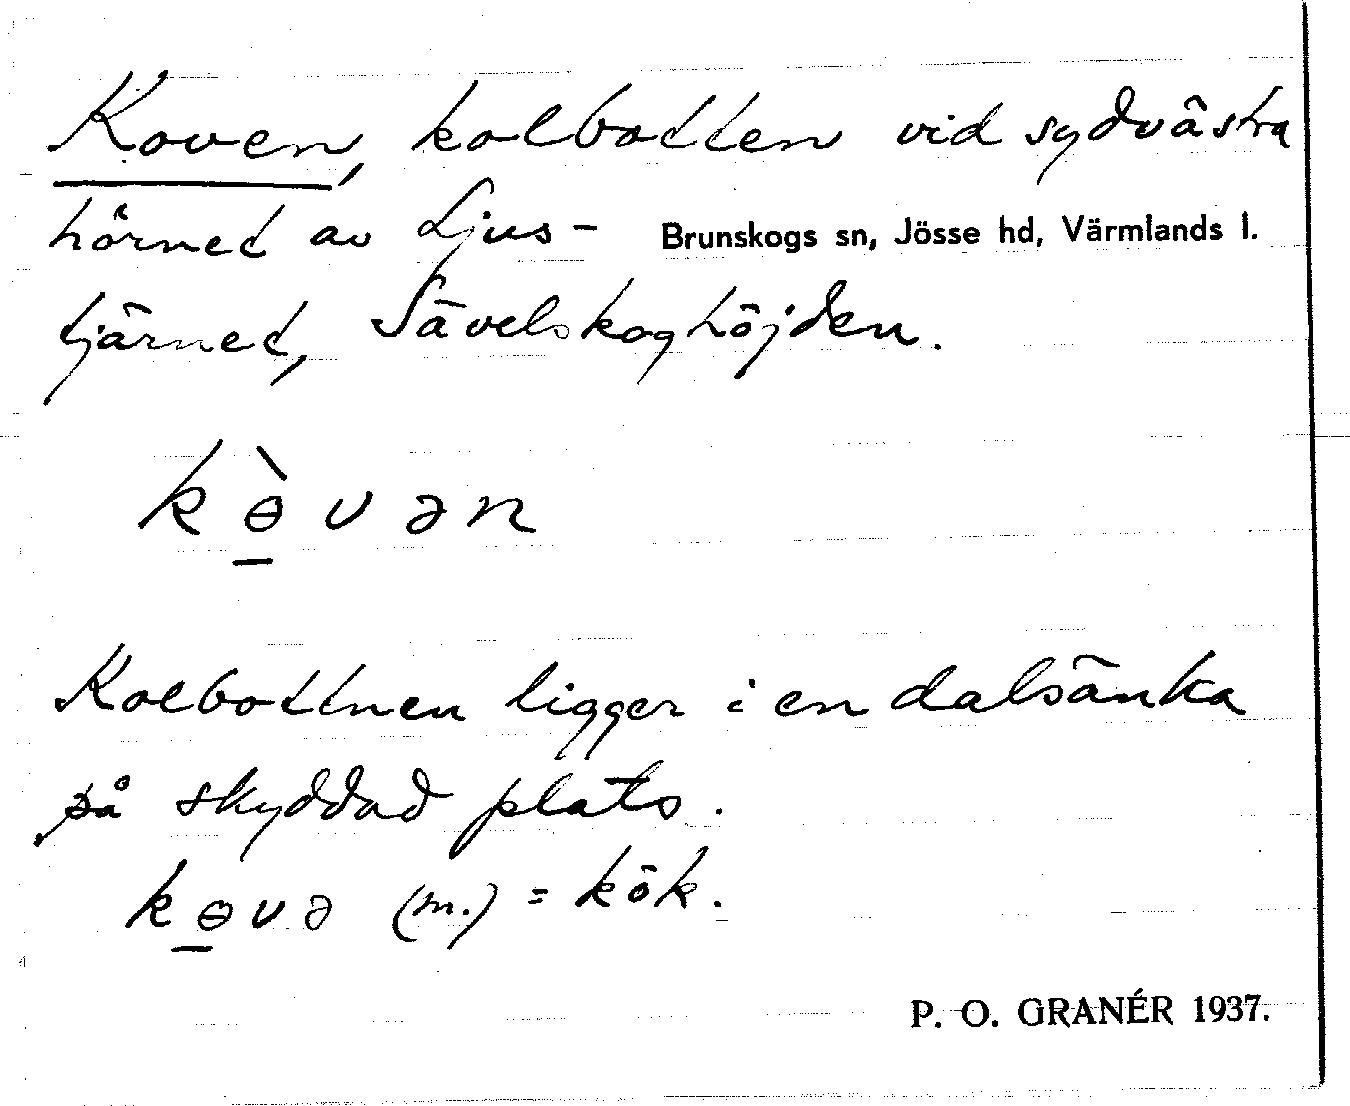 Koven, kolbotten vid sydvästra
hörnet av Ljus- Brunskogs sn, Jösse hd, Värmlands l.
tjärnet, Sävelskoghöjden.
kɵ̠̀vən
Kolbottnen ligger i en dalsänka
på skyddad plats.
kɵ̠və (m.) = kök.
P. O. GRANÉR 1937.